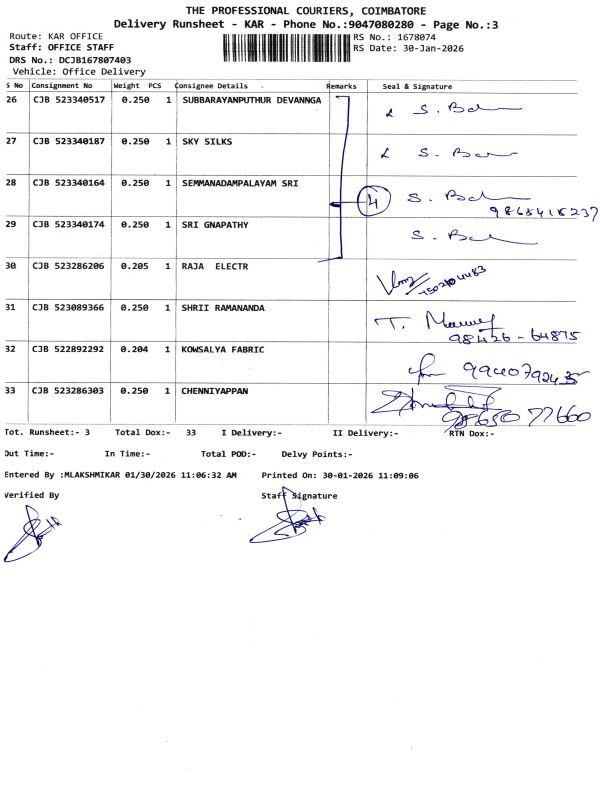 THE PROFESSIONAL COURIERS, COIMBATORE
Delivery Runsheet - KAR - Phone No.:9047080280 - Page No.:3
Route: KAR OFFICE
RS No.: 1678074
Staff: OFFICE STAFF
RS Date: 30-Jan-2026
DRS No.: DCJB167807403
Vehicle: Office Delivery
S No Consignment No Weight PCS Consignee Details Remarks Seal & Signature
26 CJB 523340517 0.250 1 SUBBARAYANPUTHUR DEVANNGA
27 CJB 523340187 0.250 1 SKY SILKS
28 CJB 523340164 0.250 1 SEMMANADAMPALAYAM SRI 4
9865418237
29 CJB 523340174 0.250 1 SRI GNAPATHY
30 CJB 523286206 0.205 1 RAJA ELECTR
31 CJB 523089366 0.250 1 SHRII RAMANANDA
98426-64875
32 CJB 522892292 0.204 1 KOWSALYA FABRIC
33 CJB 523286303 0.250 1 CHENNIYAPPAN
98650 77660
Tot. Runsheet:- 3 Total Dox:- 33 I Delivery:- II Delivery:- RTN Dox:-
Out Time:- In Time:- Total POD:- Delvy Points:-
Entered By :MLAKSHMIKAR 01/30/2026 11:06:32 AM Printed On: 30-01-2026 11:09:06
Verified By Staff Signature